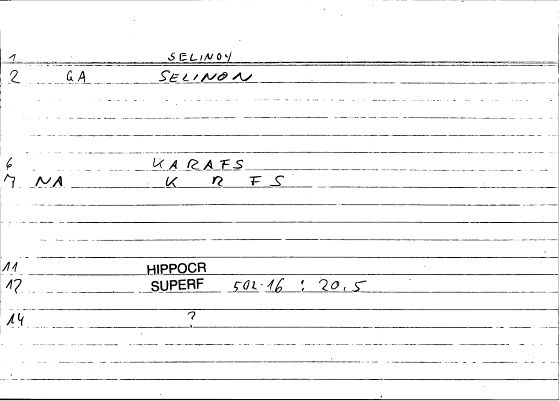 1 SELINOY
2 GA SELINON
6 KARAFS
7 NA K R F S
11 HIPPOCR
12 SUPERF 502.16 : 20.5
14 ?